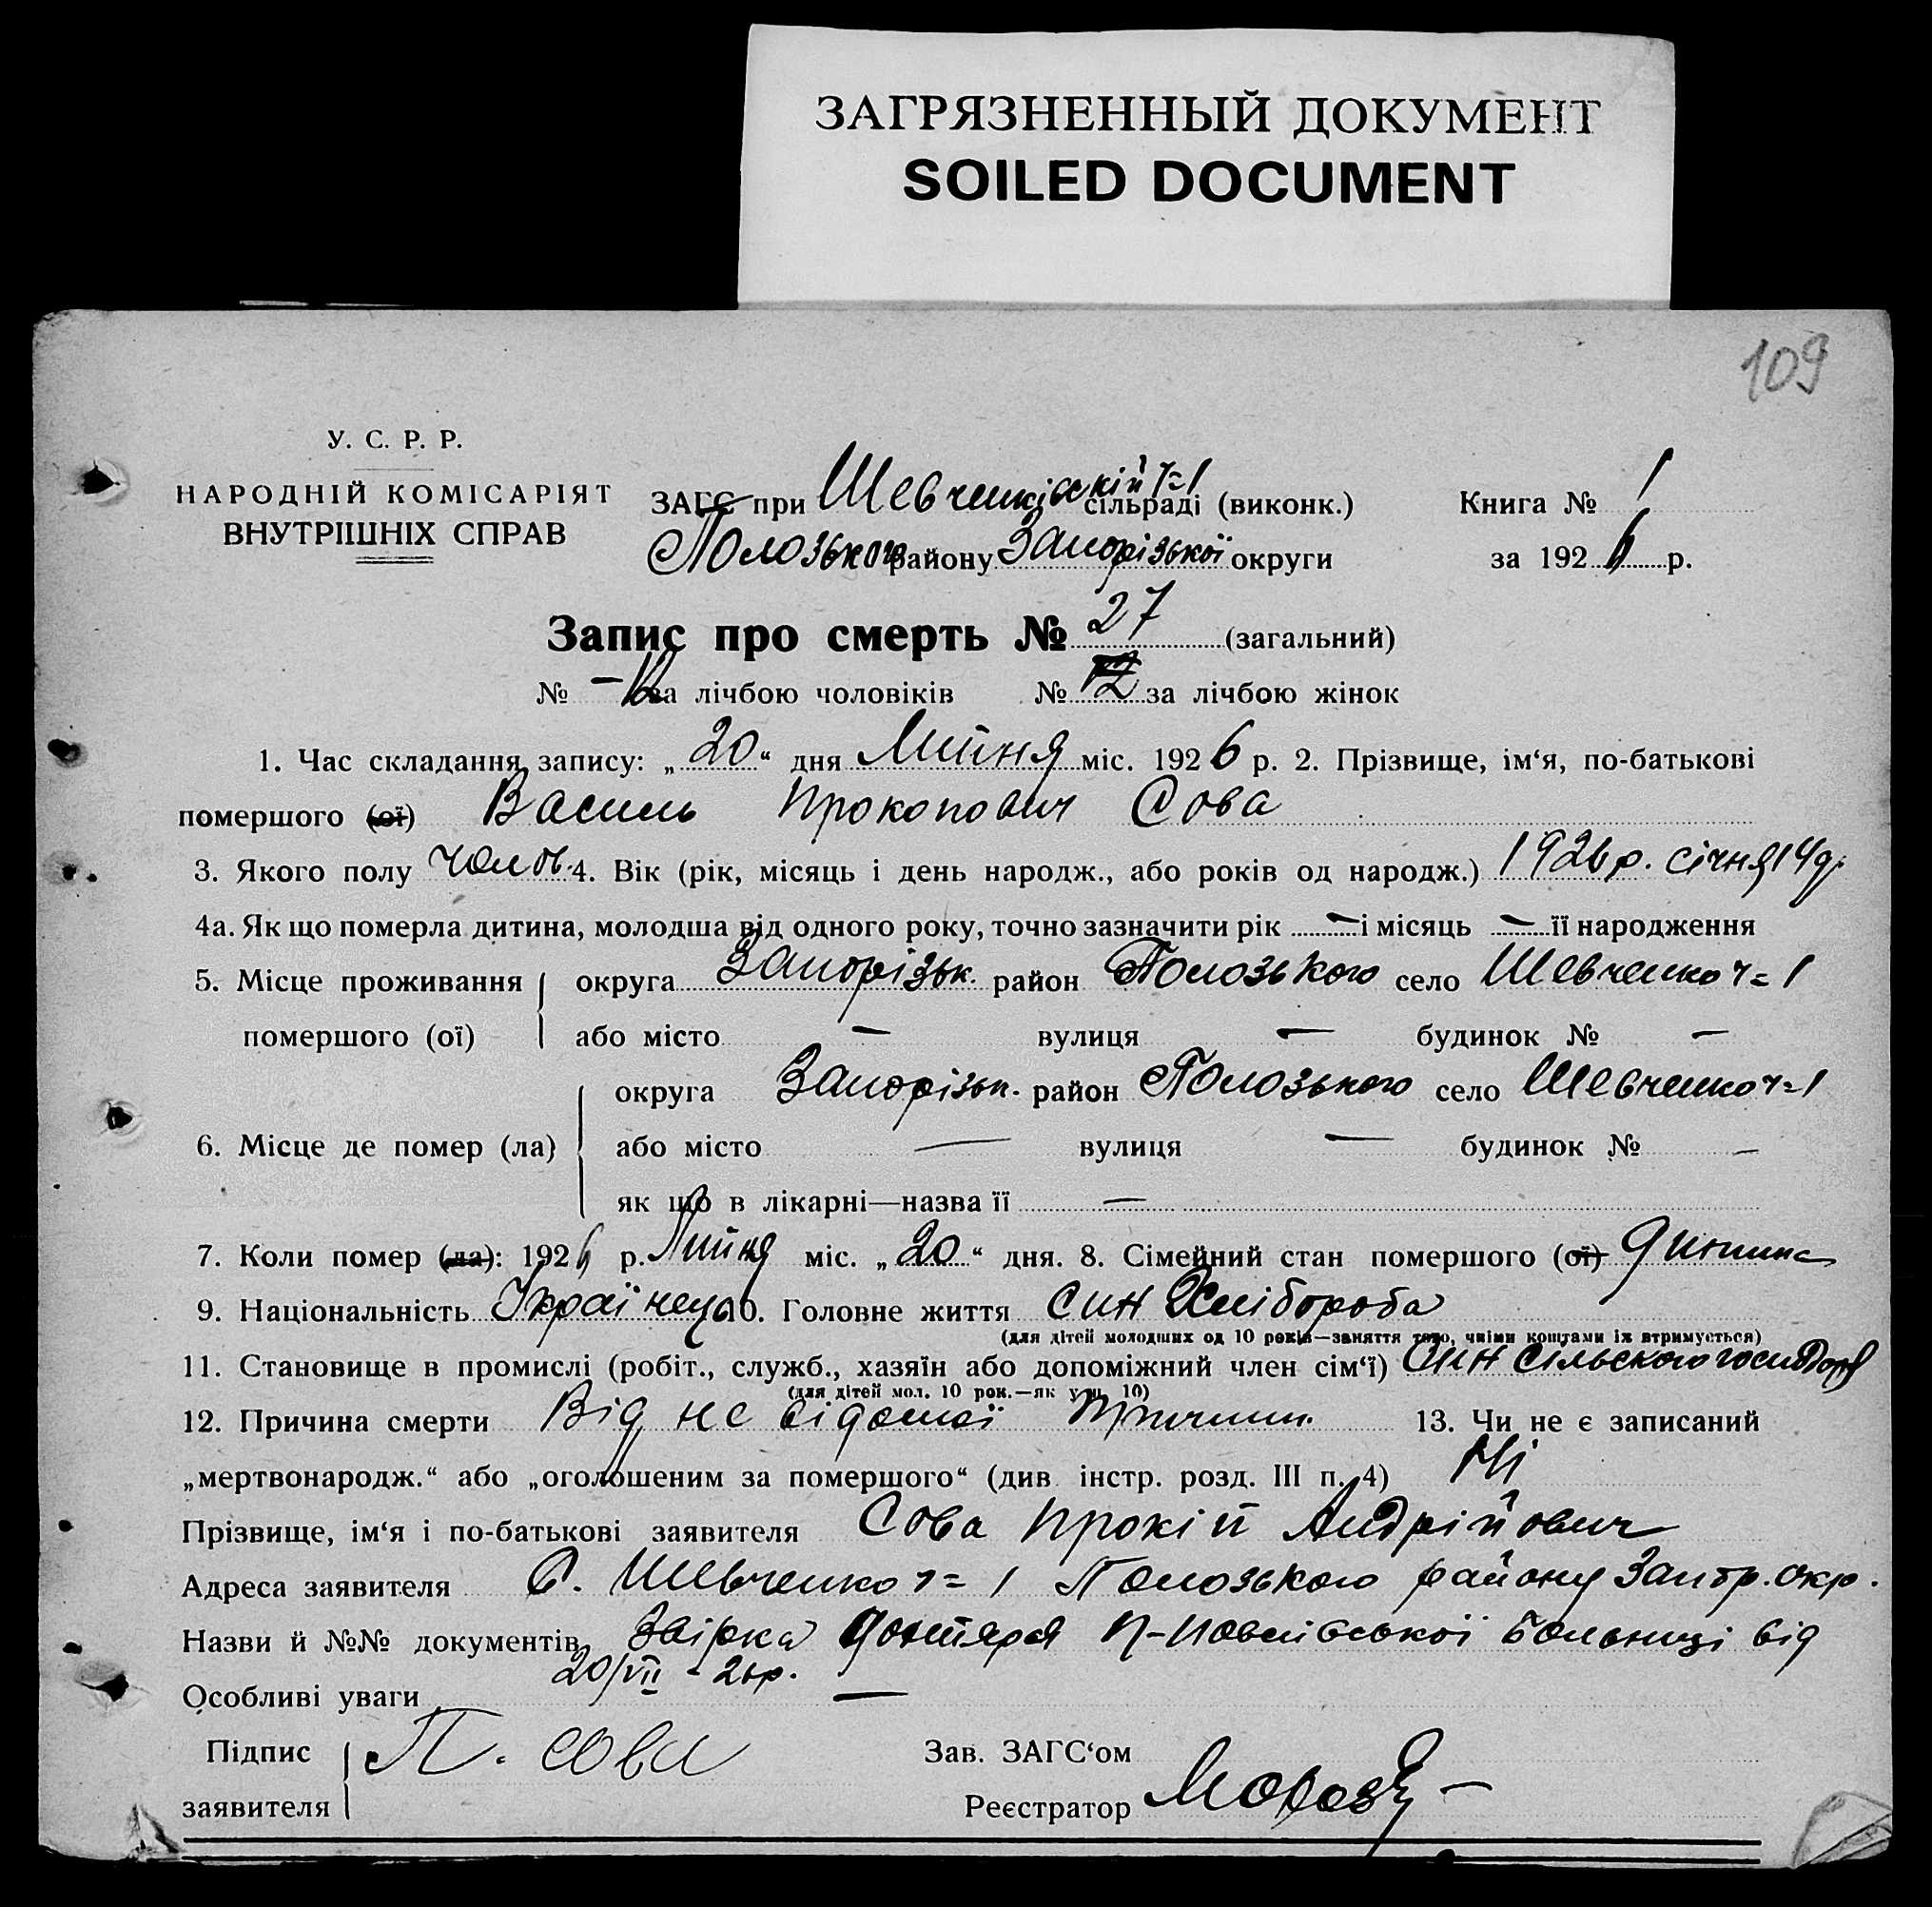 ЗАГРЯЗНЕННЫЙ ДОКУМЕНТ
SOILED DOCUMENT
109
У. С. Р. Р.
НАРОДНІЙ КОМІСАРІЯТ
ВНУТРІШНІХ СПРАВ
ЗАГС при Шевченківскій ч=1 сільраді (виконк.)
Полозького району Запорізької округи
Книга № 1
за 1926 р.
Запис про смерть № 27 (загальний)
№ за лічбою чоловіків № за лічбою жінок
1. Час складання запису: „20“ дня Липня міс. 1926 р. 2. Прізвище, ім‘я, по-батькові
помершого (ої) Василь Прокопович Сова
3. Якого полу чолов. 4. Вік (рік, місяць і день народж., або років од народж.) 1926 р. січня 14 д.
4а. Як що померла дитина, молодша від одного року, точно зазначити рік — і місяць — її народження
5. Місце проживання помершого (ої) округа Запорізьк. район Полозького село Шевченко ч=1
або місто — вулиця — будинок № —
6. Місце де помер (ла) округа Запорізьк. район Полозького село Шевченко ч=1
або місто — вулиця — будинок № —
як що в лікарні—назва її —
7. Коли помер (ла): 1926 р. Липня міс. „20“ дня. 8. Сімейний стан помершого (ої) дитина
9. Національність Українець 10. Головне життя син Хлібороба
(для дітей молодших од 10 років—заняття того, чиїми коштами їх втримується)
11. Становище в промислі (робіт., служб., хазяїн або допоміжний член сім‘ї) син сільського господаря
(для дітей мол. 10 рок.—як у п. 10)
12. Причина смерти Від не відомої причини. 13. Чи не є записаний
„мертвонародж.“ або „оголошеним за помершого“ (див. інстр. розд. III п. 4) Ні
Прізвище, ім‘я і по-батькові заявителя Сова Прокіп Андрійович
Адреса заявителя С. Шевченко ч=1 Полозького району Запор. окр.
Назви й №№ документів від
20/VII - 26 р.
Особливі уваги —
Підпис заявителя П. Сова
Зав. ЗАГС‘ом
Реєстратор